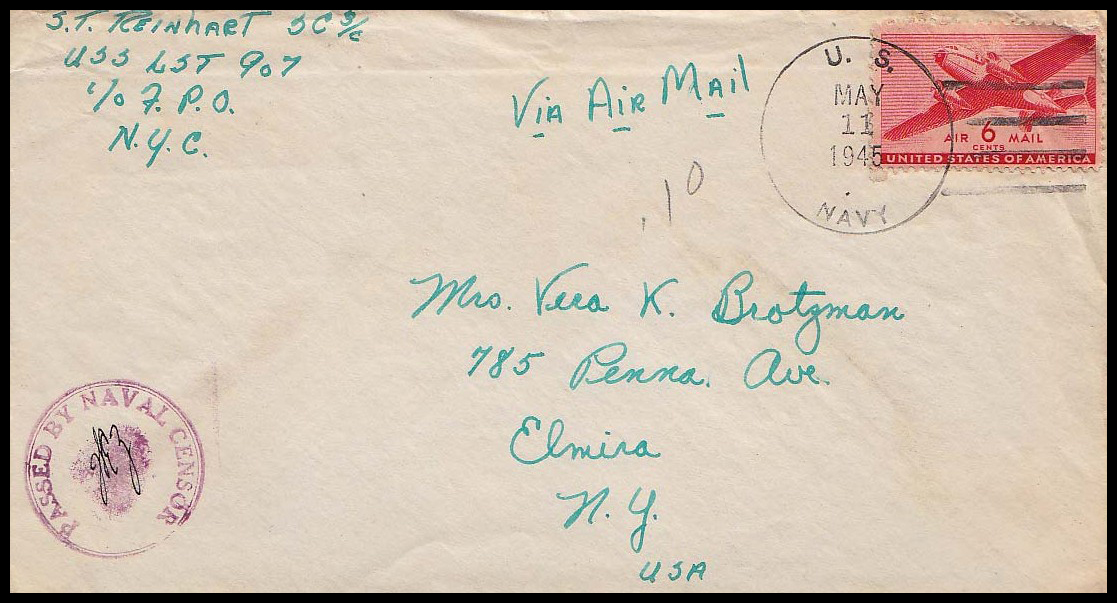 S.T. REINHART SC 3/c
USS LST 907
c/o F. P. O.
N.Y.C.
VIA AIR MAIL
U. S.
MAY
11
1945
NAVY
AIR 6 MAIL
CENTS
UNITED STATES OF AMERICA
.10
Mrs. Vera K. Brotzman
785 Penna. Ave.
Elmira
N.Y.
USA
PASSED BY NAVAL CENSOR